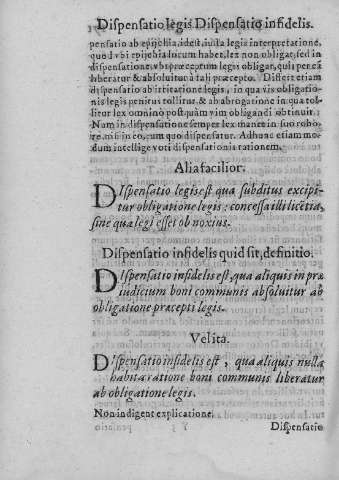 Dispensatio legis Dispensatio infidelis.
pensatio ab epijchia, idest, iusta legis interpretatione,
quod vbi epijchia locum habet, lex non obligat, sed in
dispensatione, vbi præceptum legis obligat, quis per eā
liberatur & absoluitur à tali præcepto. Differt etiam
dispensatio ab irritatione legis, in qua vis obligatio-
nis legis penitus tollitur, & ab abrogatione in qua tol-
litur lex omnino post quàm vim obligandi obtinuit.
Nam in dispensatione semper lex manet in suo robo-
re, nisi in eo, cum quo dispensatur. Ad hunc etiam mo-
dum intellige voti dispensationis rationem.
Alia facilior.
DIspensatio legis est qua subditus excipi-
tur obligatione legis: concessa illi licētia,
sine qua legi esset obnoxius.
Dispensatio infidelis quid sit, definitio.
DIspensatio infidelis est, qua aliquis in præ
iudicium boni communis absoluitur ab
obligatione præcepti legis.
Vel ita.
DIspensatio infidelis est, qua aliquis nulla
habita ratione boni communis liberatur
ab obligatione legis.
Non indigent explicatione.
Dispensatio